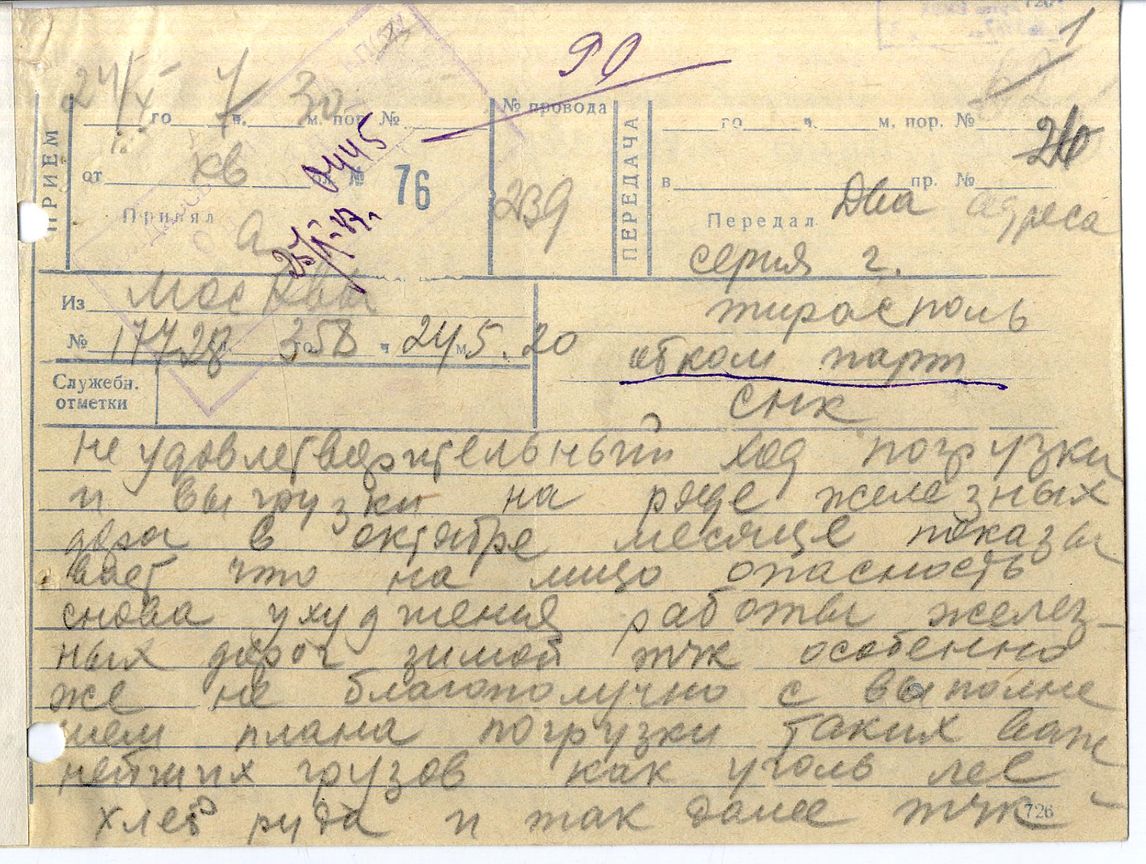 90
1
24/X 7 30
№ провода
го ч. м. пор. №
го ч. м. пор. №
26
ПРИЕМ
ПЕРЕДАЧА
от кв № 76
0445
239
в пр. №
Принял
Передал
Два адреса
серия г.
Из Москвы
Тирасполь
№ 17728 го 358 ч 245.20 м
обком парт
Служебн.
отметки
снк
неудовлетворительный ход погрузки
и выгрузки на ряде железных
дорог в октябре месяце показы
вает что на лицо опасность
снова ухудшения работы желез-
ных дорог зимой тчк особенно
же не благополучно с выполне
нием плана погрузки таких важ
нейших грузов как уголь лес
хлеб руда и так далее тчк -
726